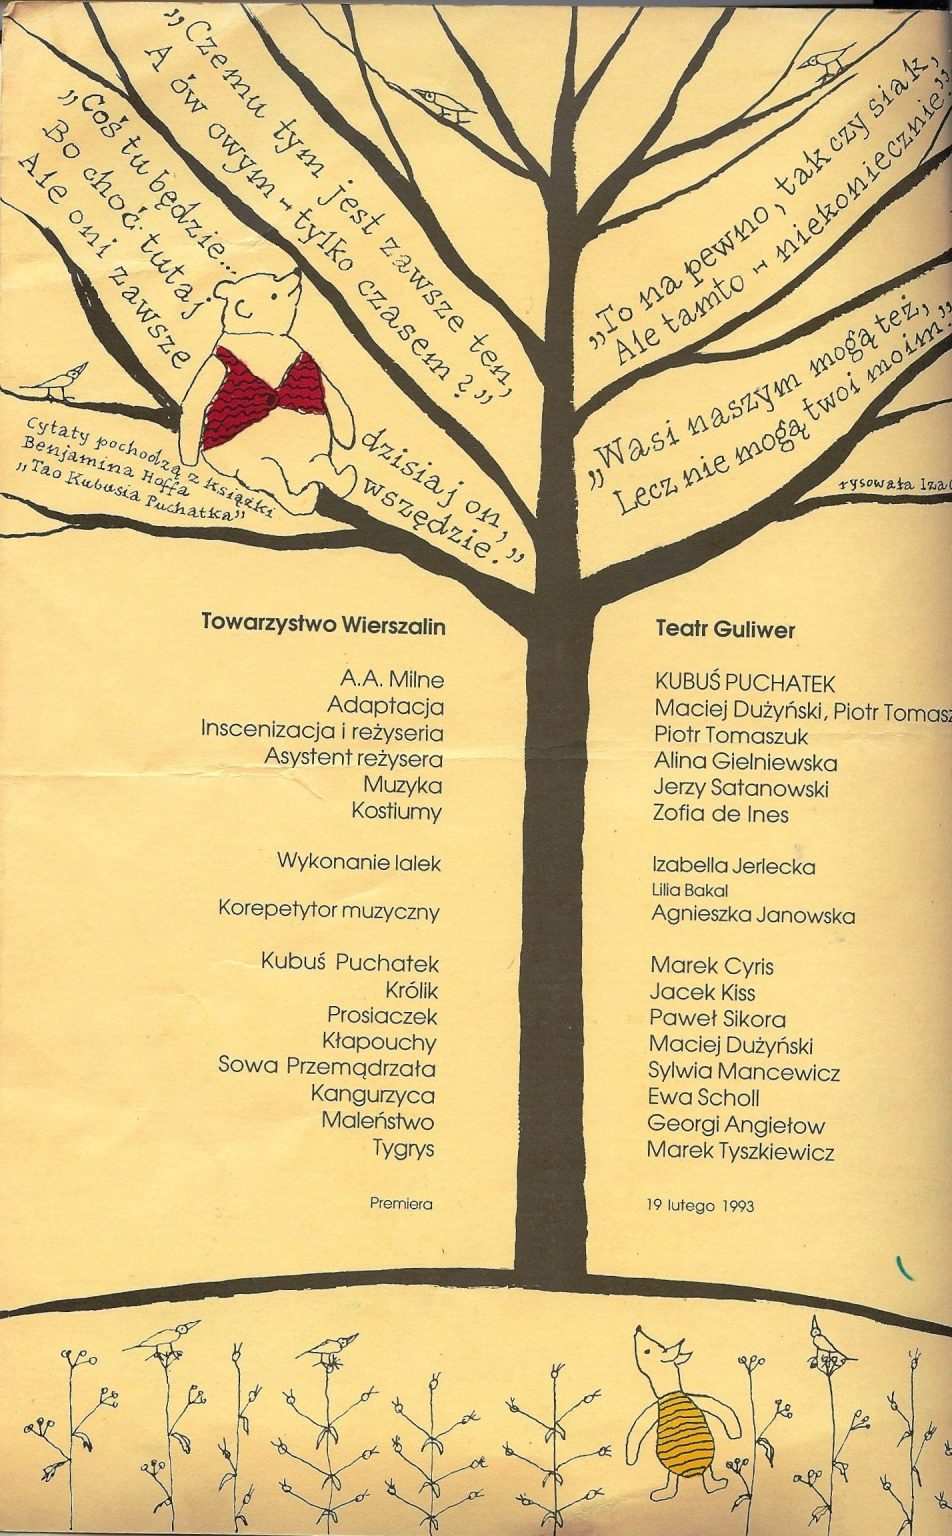 „Czemu tym jest zawsze ten,
A ów owym - tylko czasem?”
„Coś tu będzie... dzisiaj on,
Bo choć tutaj wszędzie.”
Ale oni zawsze
„To na pewno, tak czy siak,
Ale tamto - niekoniecznie”
„Wasi naszym mogą też,
Lecz nie mogą twoi moim”
Cytaty pochodzą z książki
Benjamina Hoffa
„Tao Kubusia Puchatka”
rysowała
Towarzystwo Wierszalin Teatr Guliwer
A.A. Milne KUBUŚ PUCHATEK
Adaptacja Maciej Dużyński, Piotr Tomasz
Inscenizacja i reżyseria Piotr Tomaszuk
Asystent reżysera Alina Gielniewska
Muzyka Jerzy Satanowski
Kostiumy Zofia de Ines
Wykonanie lalek Izabella Jerlecka
Lilia Bakal
Korepetytor muzyczny Agnieszka Janowska
Kubuś Puchatek Marek Cyris
Królik Jacek Kiss
Prosiaczek Paweł Sikora
Kłapouchy Maciej Dużyński
Sowa Przemądrzała Sylwia Mancewicz
Kangurzyca Ewa Scholl
Maleństwo Georgi Angiełow
Tygrys Marek Tyszkiewicz
Premiera 19 lutego 1993